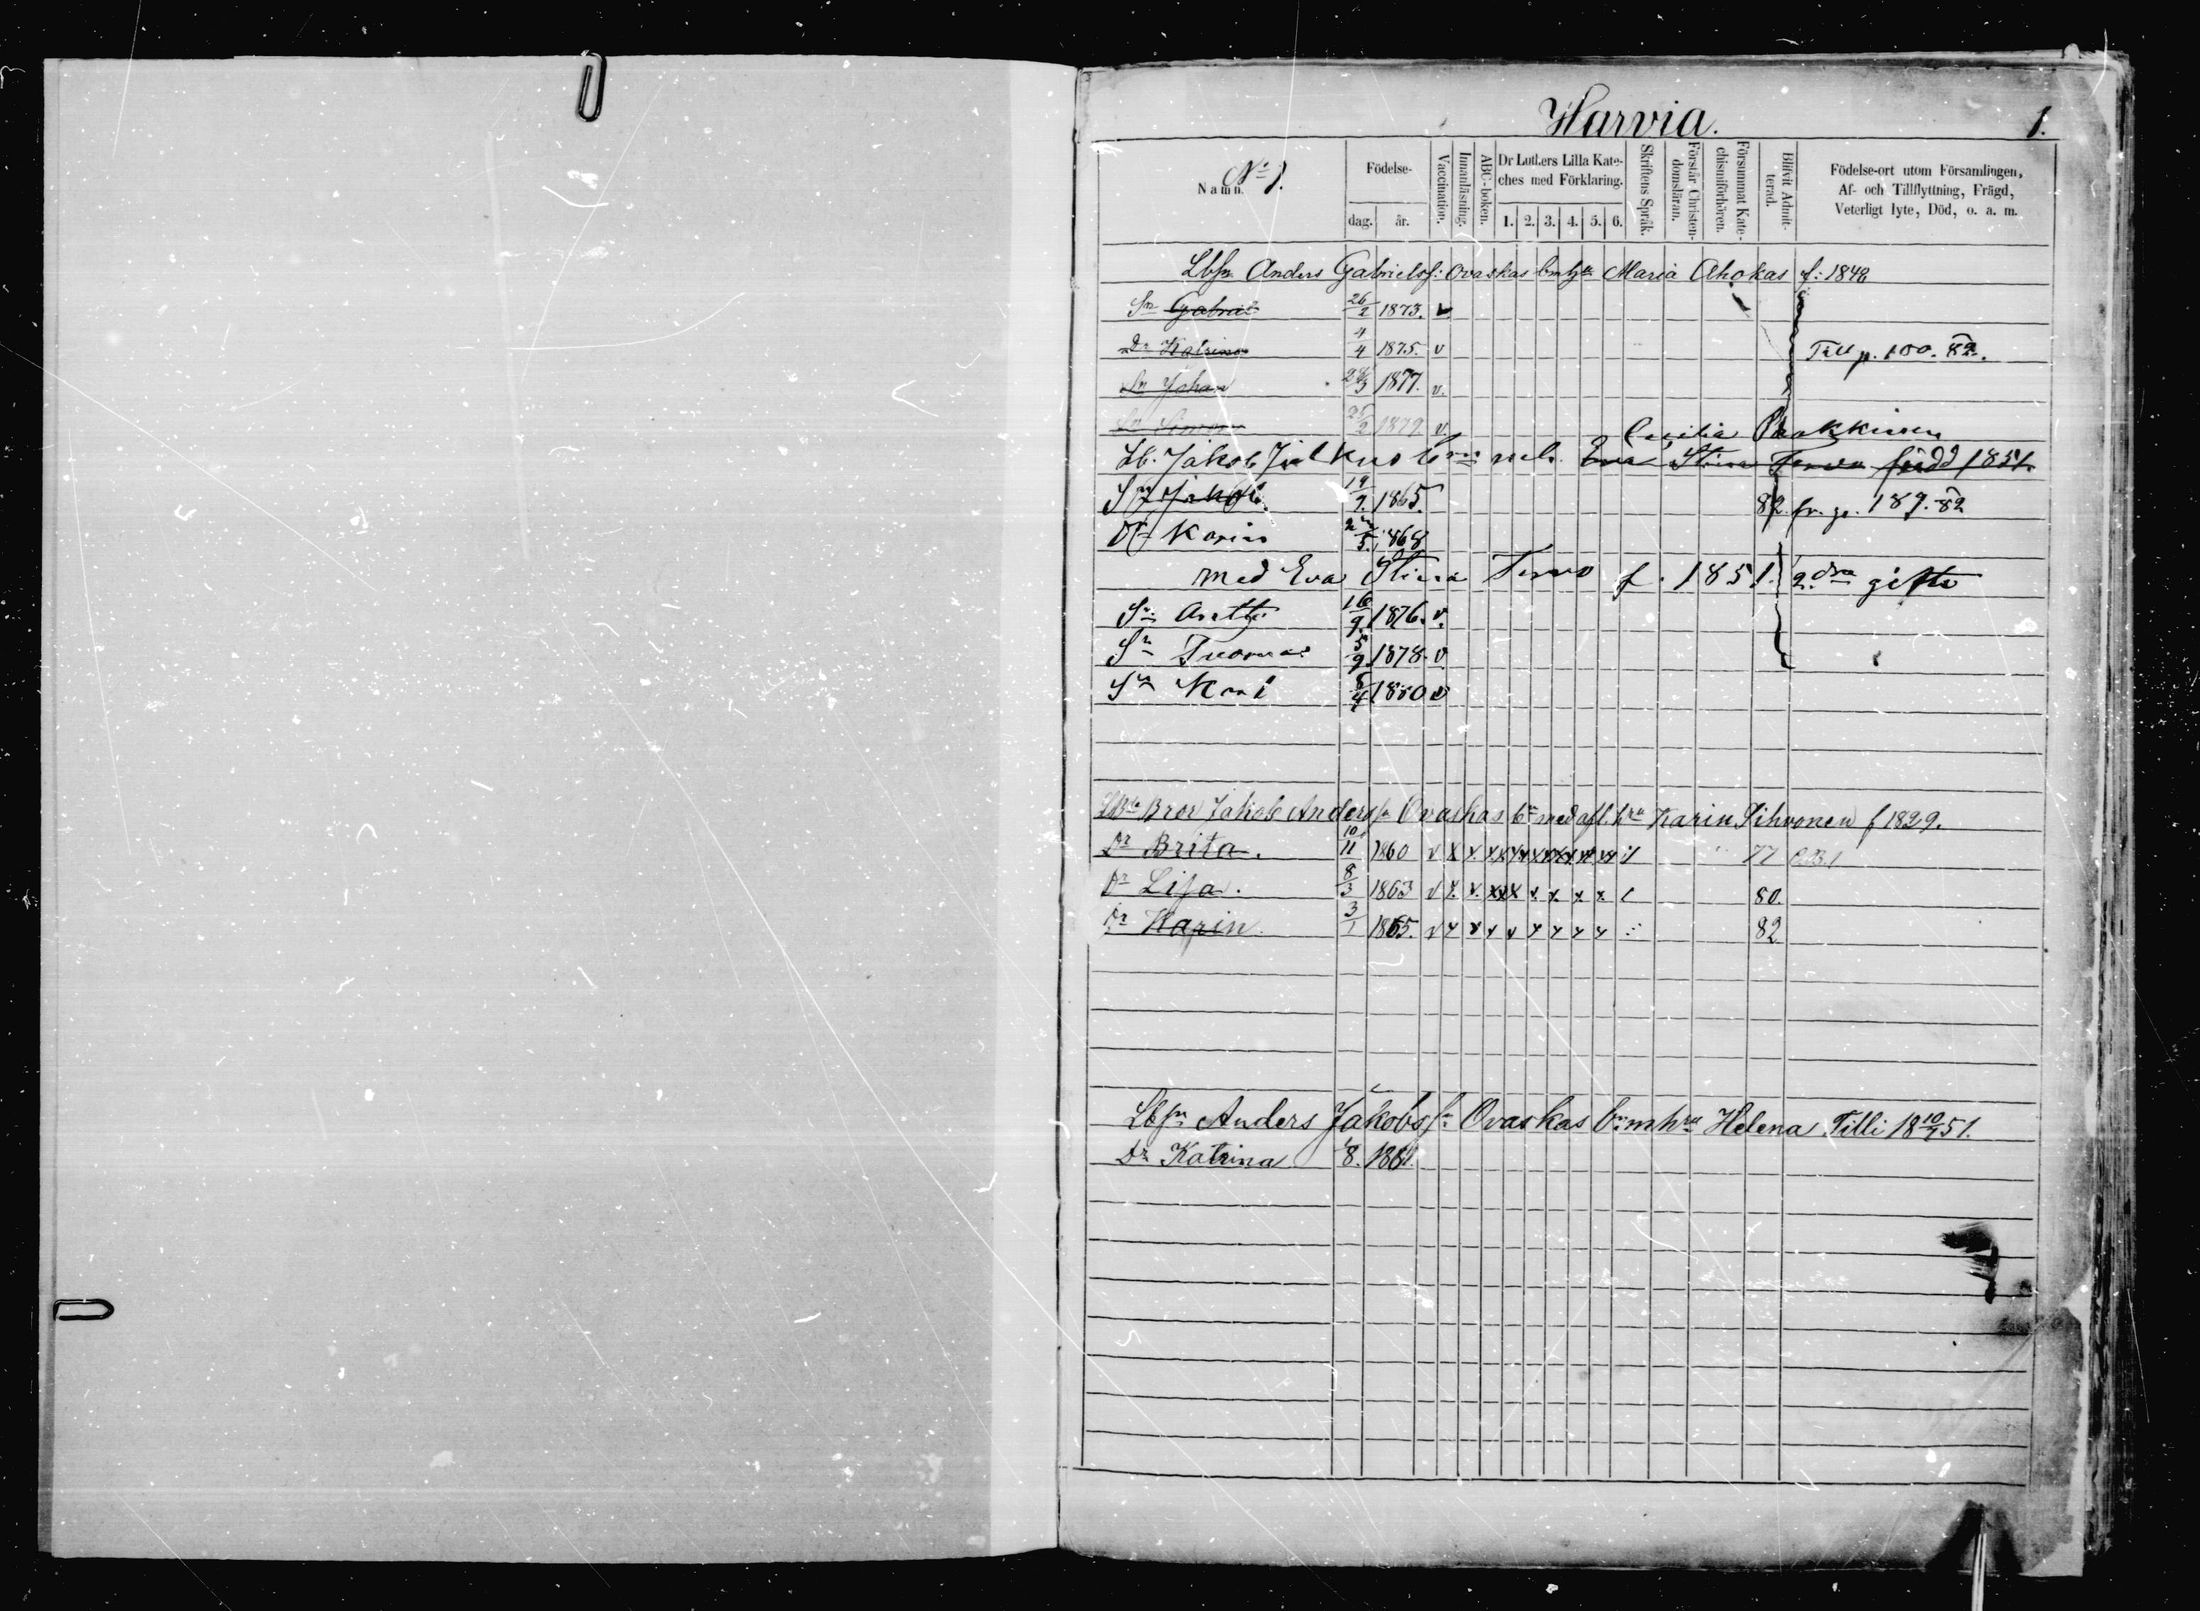 Harvia. 1.
No 1.
Namn.
Födelse-
dag. år.
Vaccination.
Innanläsning.
ABC-boken.
Dr Luthers Lilla Kate-
ches med Förklaring.
1. 2. 3. 4. 5. 6.
Skriftens Språk.
Förstår Christen-
domsläran.
Försummat Kate-
chismiförhören.
Blifvit Admit-
terad.
Födelse-ort utom Församlingen,
Af- och Tillflyttning, Frägd,
Veterligt lyte, Död, o. a. m.
Lbsn Anders Gabrielss: Ovaskas Maria Ahokas f: 1848
Sn Gabriel 26/2 1873. v
Dr Katrina 4/4 1875. v Till p. 100. 82.
Sn Johan 1877. v.
Sn Simon 25/2 1879 v.
Cecilia
Lb. Jakob Eva Stina Tervo född 1851.
Sn Jakob 19/9. 1865. 82. fr. p. 189. 82
Dr Karin 1868
med Eva Stina Tervo f. 1851. 2dra gifte
Sn Antti 16/9. 1876. v.
Sn Tuomas 5/9 1878. v.
Sn Kari 1880 v
Bror Jakob Anderss Ovaskas med afl. hru Karin Sihvonen f 1829.
Dr Brita. 10/11 1860 v x x x x x x x x 77
Dr Lisa. 8/3 1863 v x. x. x x x x. x. x. x. 80.
Dr Karin 3/1 1865. v x x x x x x x x 82
Lbsn Anders Jakobss: Ovaskas b: m hru Helena Tilli 18 10/7 51.
Dr Katrina 8. 1881.